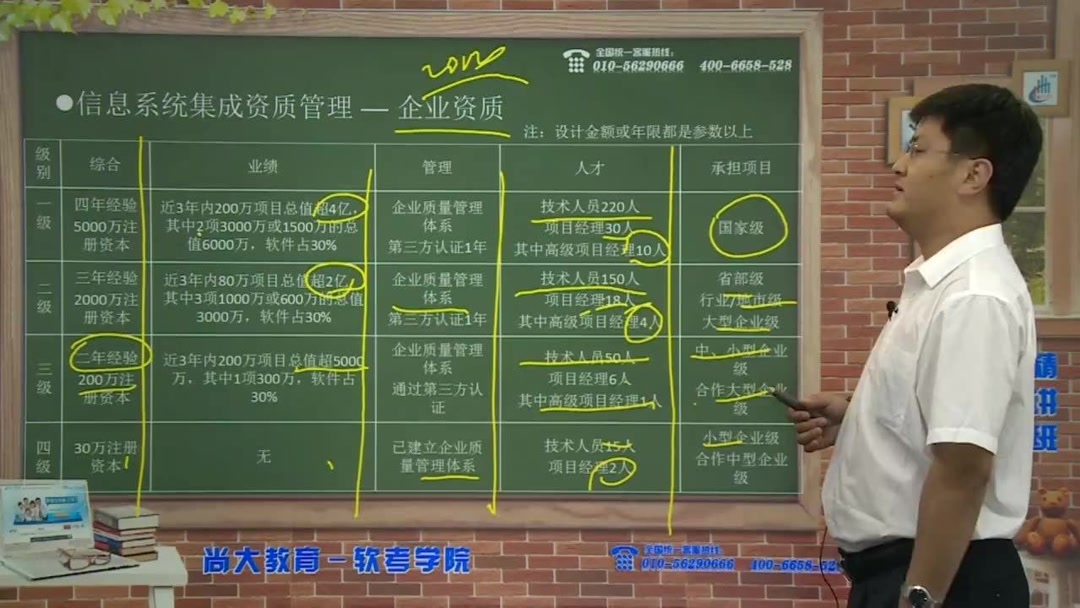 全国统一客服热线:
010-56290666 400-6658-528
●信息系统集成资质管理 — 企业资质
注:设计金额或年限都是参数以上
级别 综合 业绩 管理 人才 承担项目
一级
四年经验
5000万注
册资本
近3年内200万项目总值超4亿,
其中2项3000万或1500万的总
值6000万,软件占30%
企业质量管理
体系
第三方认证1年
技术人员220人
项目经理30人
其中高级项目经理10人
国家级
二级
三年经验
2000万注
册资本
近3年内80万项目总值超2亿,
其中3项1000万或600万的总值
3000万,软件占30%
企业质量管理
体系
第三方认证1年
技术人员150人
项目经理18人
其中高级项目经理4人
省部级
行业/地市级
大型企业级
三级
二年经验
200万注
册资本
近3年内200万项目总值超5000
万,其中1项300万,软件占
30%
企业质量管理
体系
通过第三方认
证
技术人员50人
项目经理6人
其中高级项目经理1人
中、小型企业
级
合作大型企业
级
四级
30万注册
资本
无
已建立企业质
量管理体系
技术人员15人
项目经理2人
小型企业级
合作中型企业
级
尚大教育－软考学院
全国统一客服热线:
010-56290666 400-6658-52
讲
班